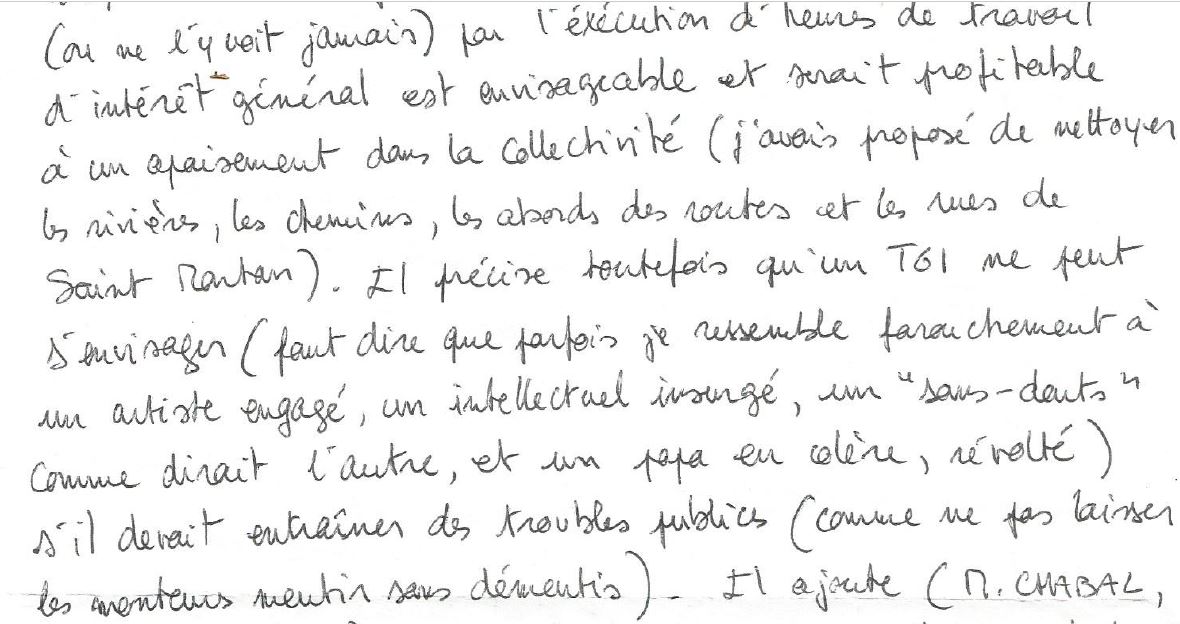 (on ne l'y voit jamais) par l'éxécution d'heures de travail
d'intérêt général est envisageable et serait profitable
à un apaisement dans la collectivité (j'avais proposé de nettoyer
les rivières, les chemins, les abords des routes et les rues de
Saint Nantan). Il précise toutefois qu'un TGI ne peut
s'envisager (faut dire que parfois je ressemble farouchement à
un artiste engagé, un intellectuel insurgé, un "sans-dents"
comme dirait l'autre, et un papa en colère, révolté)
s'il devait entraîner des troubles publics (comme ne pas laisser
les menteurs mentir sans démentis). Il ajoute (M. CHABAL,